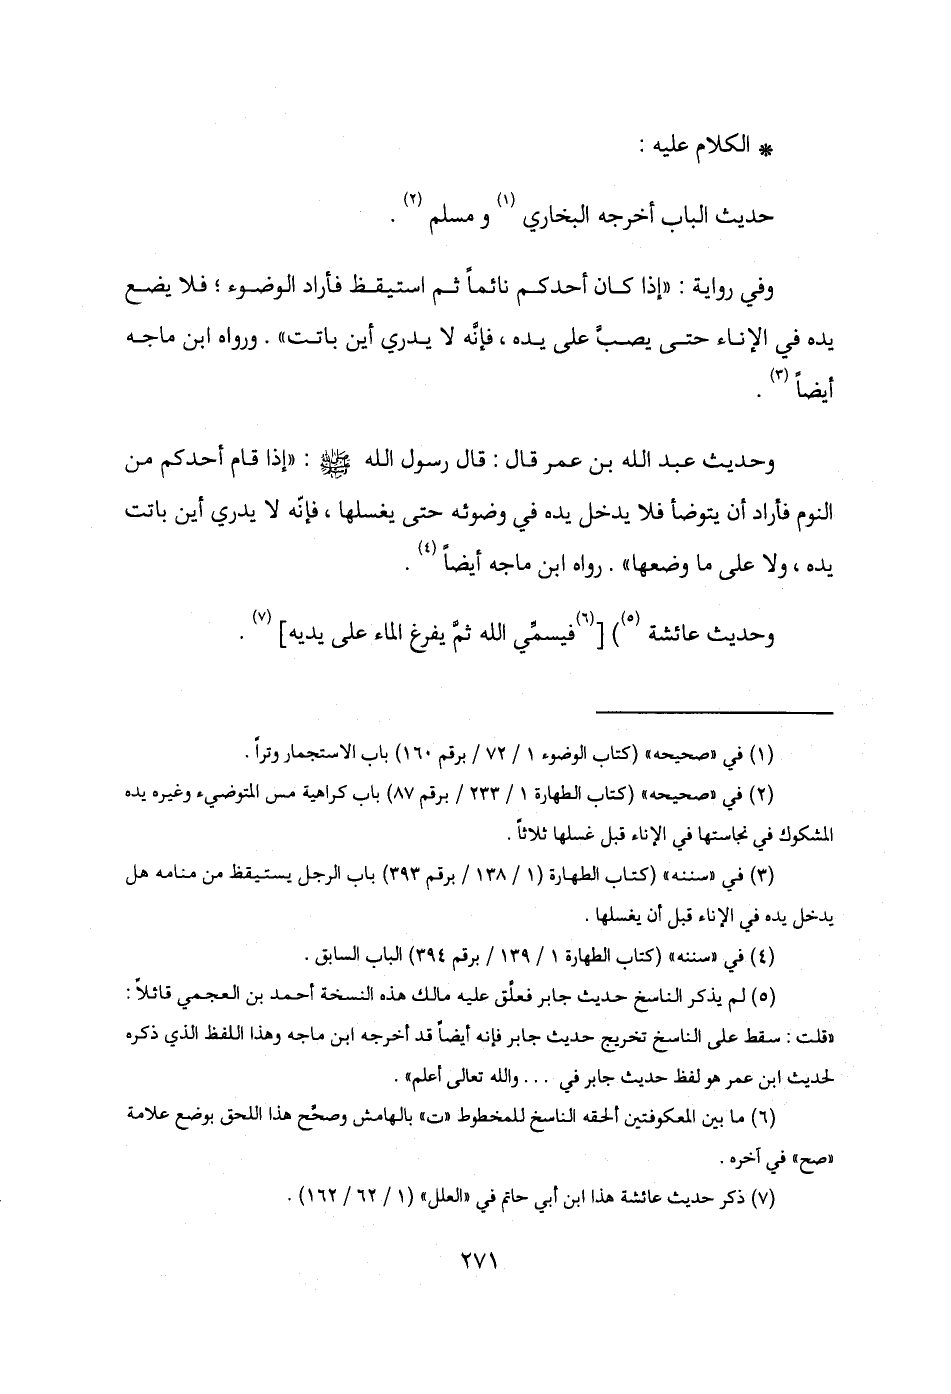 * الكلام عليه :
حديث الباب أخرجه البخاري (١) و مسلم (٢) .
وفي رواية : «إذا كـان أحدكـم نائمـاً ثـم استيقـظ فـأراد الوضـوء ؛ فـلا يضـع
يده في الإنـاء حتـى يصـبَّ على يـده ، فإنَّه لا يـدري أين باتـت» . ورواه ابن ماجـه
أيضاً (٣) .
وحديث عبـد الله بـن عمـر قـال : قـال رسول الله ﷺ : «إذا قـام أحدكـم مـن
النوم فأراد أن يتوضأ فلا يدخل يده في وضوئه حتى يغسلها ، فإنّه لا يدري أين باتت
يده ، ولا على ما وضعها» . رواه ابن ماجه أيضاً (٤) .
وحديث عائشة (٥)) [(٦)فيسمِّي الله ثمَّ يفرغ الماء على يديه] (٧) .
(١) في «صحيحه» (كتاب الوضوء ١ / ٧٢ / برقم ١٦٠) باب الاستجمار وتراً .
(٢) في «صحيحه» (كتاب الطهارة ١ / ٢٣٣ / برقم ٨٧) باب كراهية مس المتوضيء وغيره يده
المشكوك في نجاستها في الإناء قبل غسلها ثلاثاً .
(٣) في «سننه» (كتاب الطهارة (١ / ١٣٨ / برقم ٣٩٣) باب الرجل يستيقظ من منامه هل
يدخل يده في الإناء قبل أن يغسلها .
(٤) في «سننه» (كتاب الطهارة ١ / ١٣٩ / برقم ٣٩٤) الباب السابق .
(٥) لم يذكر الناسخ حديث جابر فعلَّق عليه مالك هذه النسخة أحمد بن العجمي قائلاً :
«قلت : سقط على الناسخ تخريج حديث جابر فإنه أيضاً قد أخرجه ابن ماجه وهذا اللفظ الذي ذكره
لحديث ابن عمر هو لفظ حديث جابر في ... والله تعالى أعلم» .
(٦) ما بين المعكوفتين ألحقه الناسخ للمخطوط «ت» بالهامش وصحَّح هذا اللحق بوضع علامة
«صح» في آخره .
(٧) ذكر حديث عائشة هذا ابن أبي حاتم في «العلل» (١ / ٦٢ / ١٦٢) .
٢٧١